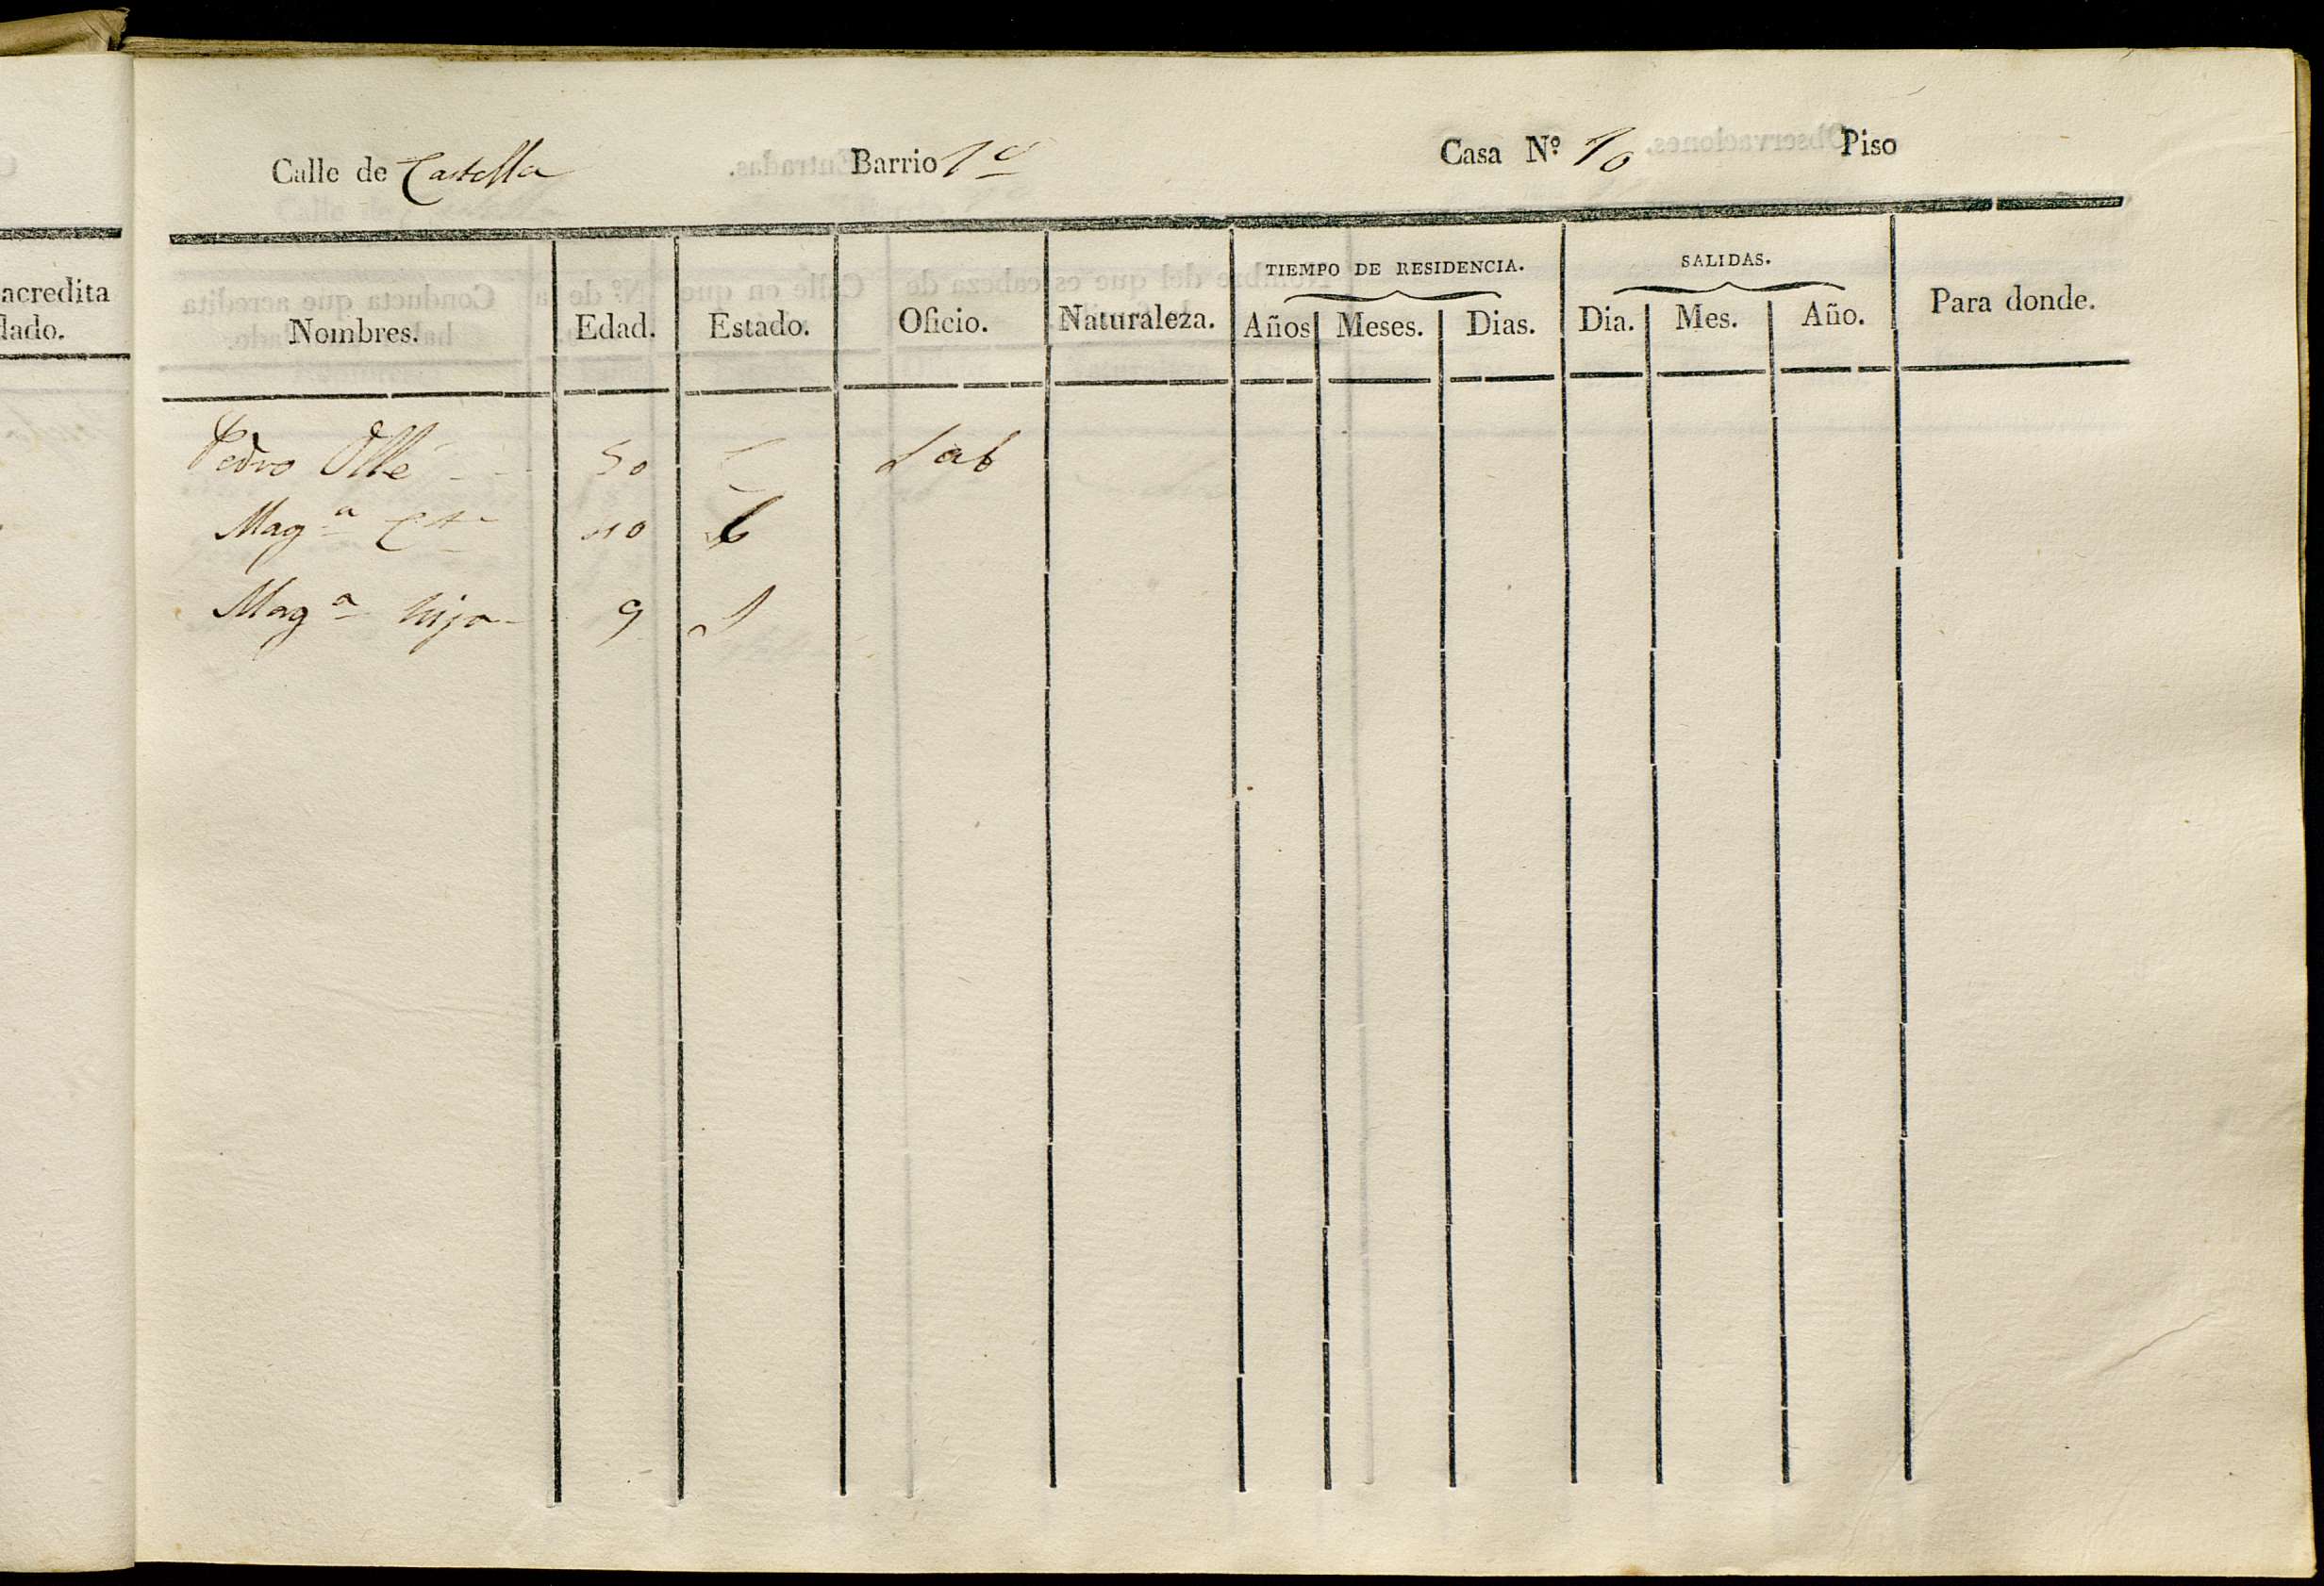 acredita
lado.
Calle de Castella Barrio 1º Casa Nº 10 Piso
TIEMPO DE RESIDENCIA. SALIDAS.
Nombres. Edad. Estado. Oficio. Naturaleza. Años Meses. Dias. Dia. Mes. Año. Para donde.
Pedro Ollé 50 Lab
Mag.ª 40
Mag.ª hija 9